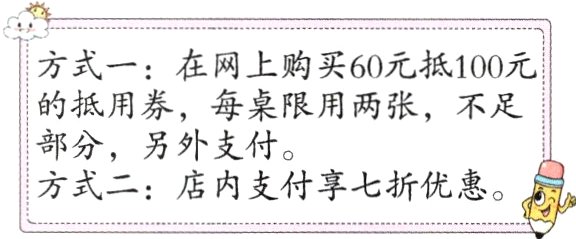 方式一：在网上购买60元抵100元
的抵用券，每桌限用两张，不足
部分，另外支付。
方式二：店内支付享七折优惠。